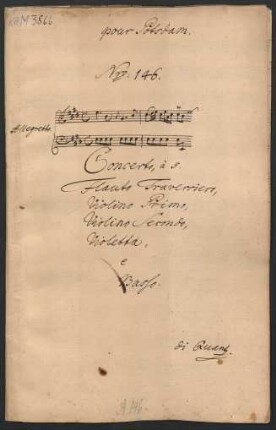 KHM 3866
pour Potsdam.
No: 146.
Allegretto.
Concerto, à 5.
Flauto Traversiero,
Violino Primo,
Violino Secondo,
Violetta,
e
Basso.
di Quanz.